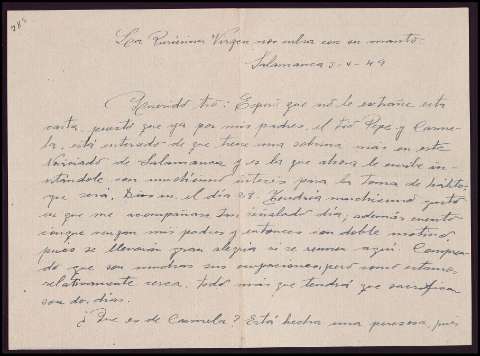 La Purísima Virgen nos cubra con su manto.
Salamanca 5-4-49
Querido tío: Espero que no le extrañe esta
carta, puesto que ya por mis padres, el tío Pepe y Carme-
la, está enterado de que tiene una sobrina más en este
Noviciado de Salamanca y es la que ahora le escribe in-
vitándole con muchísimo interés para la toma de hábito,
que será, Dios m. el día 23. Tendría muchísimo gusto
en que me acompañara tan señalado día; además cuento
con que vengan mis padres y entonces con doble motivo
pues se llevarán gran alegría si se reunen aquí. Compren-
do que son muchas sus ocupaciones, pero como estamos
relativamente cerca, todo más que tendrá que sacrificar
son dos días.
¿Que es de Carmela? Está hecha una perezosa, pues